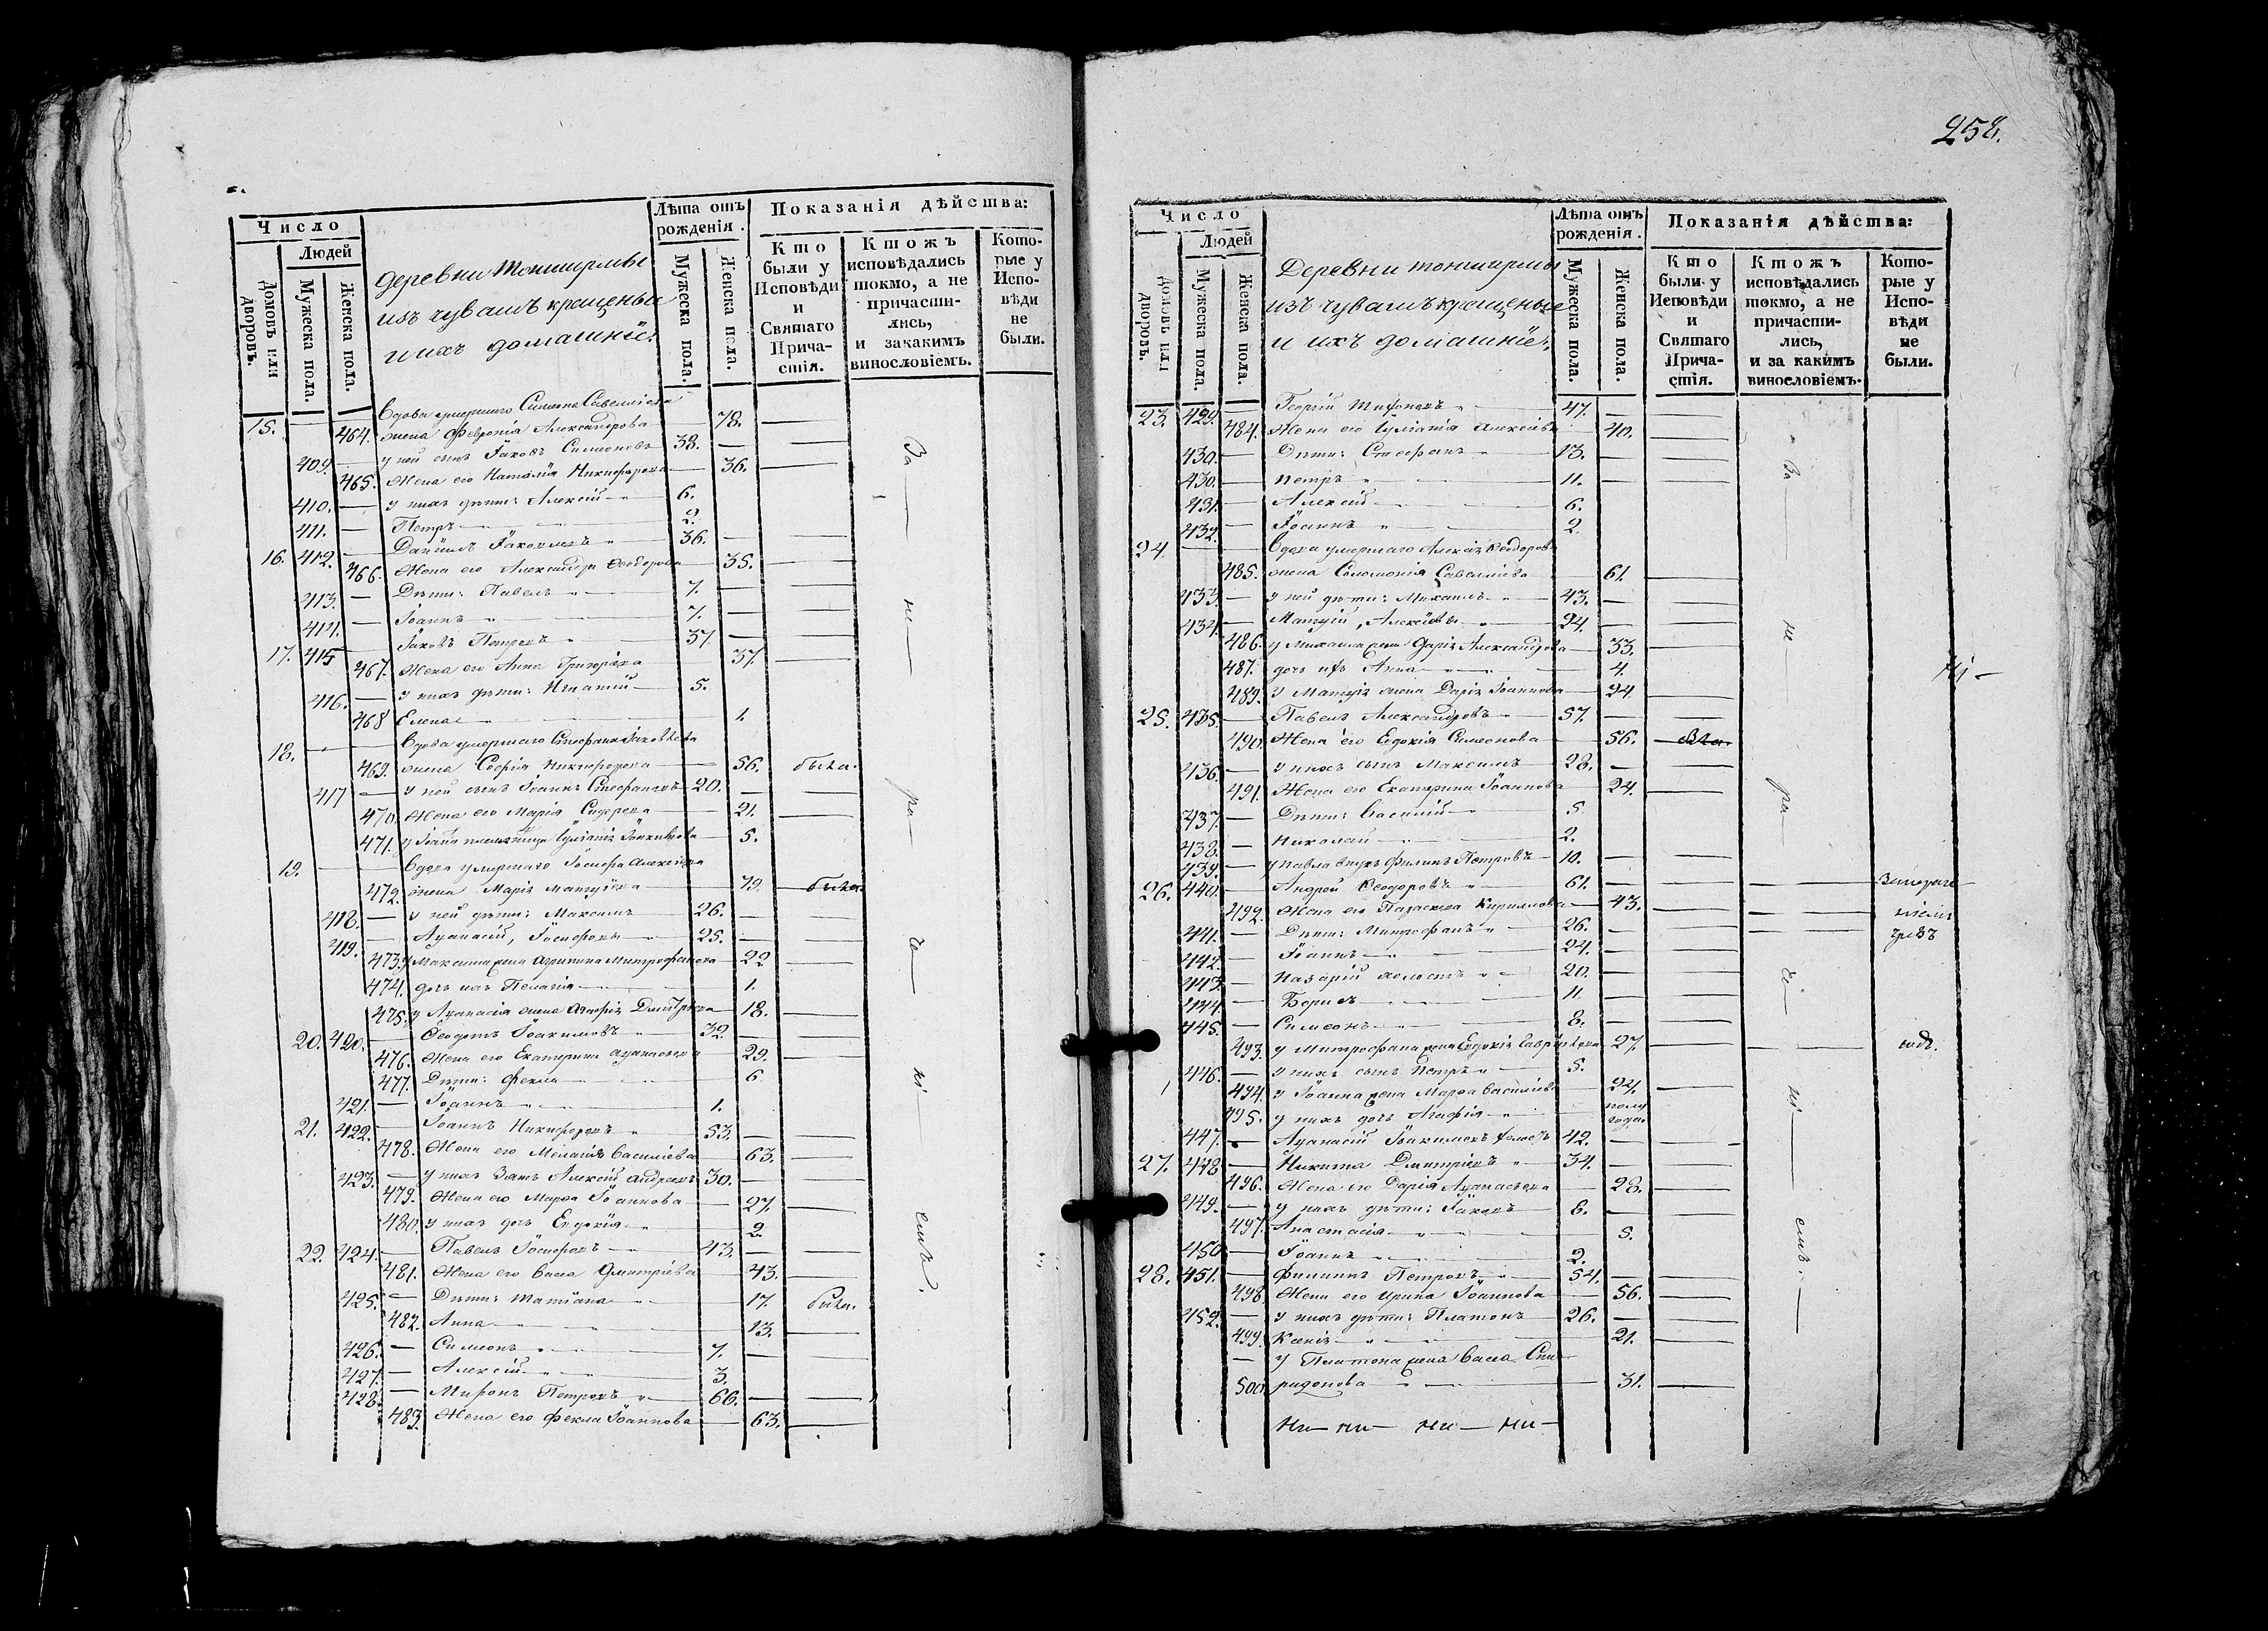 Число
Людей
Домовъ или дворовъ.
Мужеска пола.
Женска пола.
деревни Тонширмы
изъ чувашъ крещеныи
и ихъ домашніе.
Лѣта отъ рожденія.
Мужеска пола.
Женска пола.
Показанія дѣйства:
Кто были у Исповѣди и Святаго Причастія.
Ктожъ исповѣдались токмо, а не причастились, и закакимъ винословіемъ.
Которые у Исповѣди не были.
Вдова умершаго Симеона Савеліева
15. — 464. жена Февронія Александрова 78. —
409. — у ней сынъ Іаковъ Симеоновъ 38. —
465. Жена его Наталія Никифорова — 36. —
410. — у нихъ дѣти: Алексій 6.
411. — Петръ 2.
16. 412. — Даніилъ Іаковлевъ 36. —
466. Жена его Александра Ѳеодорова 35. —
413. — Дѣти: Павелъ 7. —
414. — Іоаннъ 7. —
17. 415 — Іаковъ Петровъ 37. —
467. Жена его Анна Григорьева 37. —
416. — у нихъ дѣти: Игнатій 5.
468 Елена 1.
18. — — Вдова умершаго Стефана Іаковлева
469. жена Софія Никифорова — 56. была.
417 — у ней сынъ Іоаннъ Стефановъ 20. —
470. Жена его Марія Сидорова — 21. —
471. у Іоана племянница Іуліанія 5.
19. — — Вдова умершаго Іосифа Алексіева
472. жена Марія Матѳіева — 79. была.
418. — у ней дѣти: Максимъ 26. —
419. — Аѳанасій, Іосифовы 25. —
473. у Максима жена Агрипина Митрофанова 22 —
474. дочь ихъ Пелагія 1.
475. у Аѳанасія жена Агафія Дмитріева 18. —
20. 420. — Ѳеодотъ Іоакимовъ 32. —
476. Жена его Екатерина Аѳанасьева 29. —
477. Дѣти: Фекла 6
421. — Іоаннъ 1.
21. 422. — Іоаннъ Никифоровъ 53. —
478. Жена его Меланія Василіева 63. —
423. — у нихъ Зять Алексій Андреевъ 30. —
479. Жена его Марѳа Іоаннова 27. —
480. у нихъ дочь Евдокія 2.
22. 424. — Павелъ Іосифовъ 43. —
481. Жена его Васса Дмитріева 43. —
425. — Дѣти: Татіана 17. была.
482. Анна 13. —
426. — Симеонъ 7. —
427. — Алексій 3.
428. — Миронъ Петровъ 66. —
483. Жена его Фекла Іоаннова 63. —
За — не — ра — че — ні — емъ.
258.
Число
Людей
Домовъ или дворовъ.
Мужеска пола.
Женска пола.
Деревни Тонширмы
изъ чувашъ крещеные
и ихъ домашніе.
Лѣта отъ рожденія.
Мужеска пола.
Женска пола.
Показанія дѣйства:
Кто были у Исповѣди и Святаго Причастія.
Ктожъ исповѣдались токмо, а не причастились, и за какимъ винословіемъ.
Которые у Исповѣди не были.
23. 429. — Георгій 47. —
484. Жена его Іуліанія Алексіева 40. —
430. — Дѣти: Стефанъ 13. —
430. — Петръ 11. —
431. — Алексій 6.
432. — Іоаннъ 2.
24. — — Вдова умершаго Алексія Ѳеодорова
485. жена Соломонія Савеліева 61. —
433. — у ней дѣти: Михаилъ 43. —
434. — Матѳій, Алексіевы 24. —
486. у Михаила жена Дарія Александрова — 33. —
487. дочь ихъ Анна 4.
489. у Матѳія жена Дарія Іоаннова 24 —
25. 435. — Павелъ Александровъ 57. —
490. Жена его Евдокія Симеонова 56. —
436. — у нихъ сынъ Максимъ 28. —
491. Жена его Екатерина Іоаннова 24. —
437. — Дѣти: Василій 5.
438. — Николай 2.
439. — у Павла внукъ Филипъ Петровъ 10. —
26. 440. — Андрей Ѳеодоровъ 61. —
492. Жена его Параскева Кирилова 43. —
441. — Дѣти: Митрофанъ 26. —
442. — Іоаннъ 24. —
443. — Назарій холостъ 20. —
444. — Борисъ 11. —
445. — Симеонъ 8. —
493. у Митрофана жена Евдокія Гаврилова 27. —
446. — у нихъ сынъ Петръ 5.
494. у Іоанна жена Марѳа Василіева 24. —
495. у нихъ дочь Агафія полгода.
447. — Аѳанасій Іоакимовъ холостъ 42. —
27. 448 — Никита Дмитріевъ 34. —
496. Жена его Дарія Аѳанасьева 28. —
449. — у нихъ дѣти: Іаковъ 6. —
497. Анастасія 5.
450 — Іоаннъ 2.
28. 451. — Филиппъ Петровъ 54. —
498. Жена его Ирина Іоаннова 56. —
452. — у нихъ дѣти: Платонъ 26. —
499. Ксенія 21. —
— у Платона жена Васса Спи-
500. ридонова 31. —
За — не — ра — че — ні — емъ. —